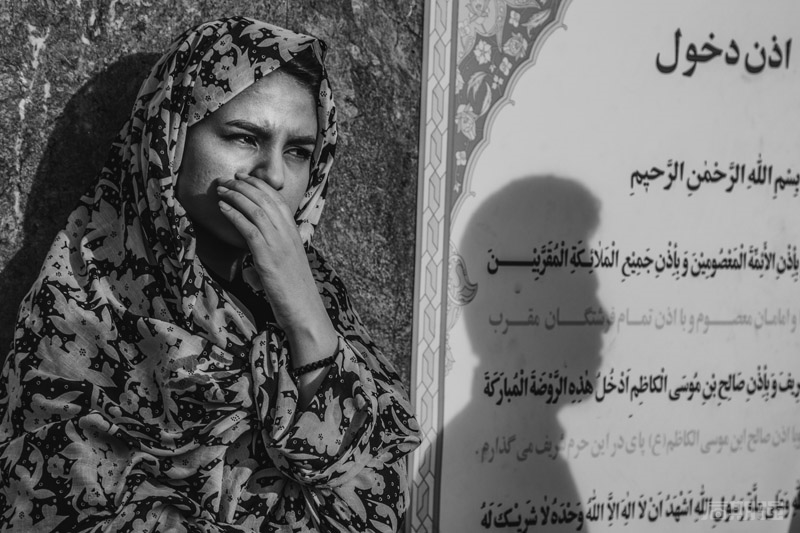 اذن دخول
بِسْمِ اللّٰهِ الرَّحْمٰنِ الرَّحِيمِ
بِاِذْنِ الاَئِمَّةِ الْمَعْصُومِيْنَ وَ بِاِذْنِ جَمِيْعِ الْمَلائِكَةِ الْمُقَرَّبِيْنَ
و امامان معصوم و با اذن تمام فرشتگان مقرب
وَ بِاِذْنِ صَالِحِ بْنِ مُوسَى الْكَاظِمِ اَدْخُلُ هٰذِهِ الرَّوْضَةَ الْمُبَارَكَةَ
با اذن صالح ابن موسی الکاظم (ع) پای در این حرم شریف می گذارم.
اللهِ اَشْهَدُ اَنْ لا اِلٰهَ اِلَّا اللهُ وَحْدَهُ لا شَرِيْكَ لَهُ